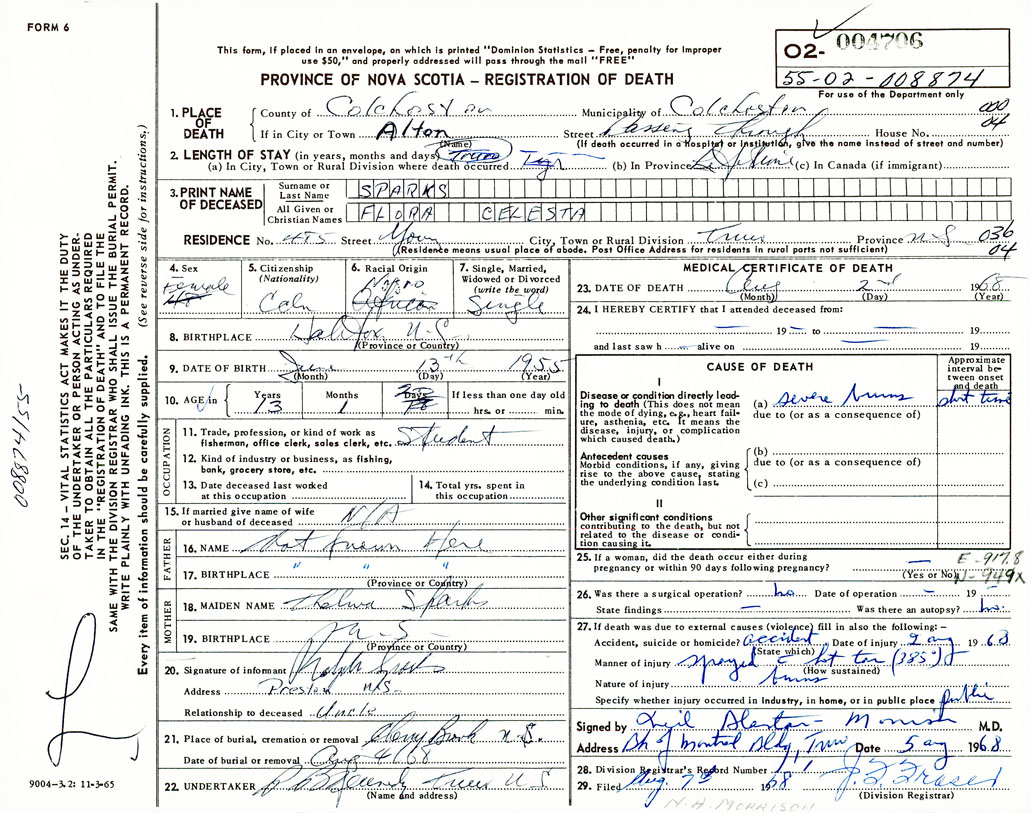 FORM 6
This form, if placed in an envelope, on which is printed "Dominion Statistics – Free, penalty for improper
use $50," and properly addressed will pass through the mail "FREE"
PROVINCE OF NOVA SCOTIA – REGISTRATION OF DEATH
O2- 004706
55-02-008874
For use of the Department only
000
04
1. PLACE OF DEATH
County of Municipality of
If in City or Town Alton Street Passing through House No.
(Name) (If death occurred in a Hospital or Institution, give the name instead of street and number)
2. LENGTH OF STAY (in years, months and days)
(a) In City, Town or Rural Division where death occurred (b) In Province Lifetime (c) In Canada (if immigrant)
3. PRINT NAME OF DECEASED
Surname or Last Name SPARKS
All Given or Christian Names FLORA CELESTA
RESIDENCE No. 485 Street City, Town or Rural Division Truro Province N-S 036
04
(Residence means usual place of abode. Post Office Address for residents in rural parts not sufficient)
4. Sex Female
5. Citizenship (Nationality) Cdn
6. Racial Origin Negro
7. Single, Married, Widowed or Divorced (write the word) Single
8. BIRTHPLACE Halifax N-S.
(Province or Country)
9. DATE OF BIRTH June 13th 1955
(Month) (Day) (Year)
10. AGE in Years 13 Months 1 Days If less than one day old hrs. or min.
OCCUPATION
11. Trade, profession, or kind of work as
fisherman, office clerk, sales clerk, etc. Student
12. Kind of industry or business, as fishing,
bank, grocery store, etc.
13. Date deceased last worked
at this occupation
14. Total yrs. spent in
this occupation
15. If married give name of wife
or husband of deceased N/A
FATHER
16. NAME Not Known Here
17. BIRTHPLACE " " "
(Province or Country)
MOTHER
18. MAIDEN NAME Thelma Sparks
19. BIRTHPLACE N-S-
(Province or Country)
20. Signature of informant Ralph Sparks
Address Preston N.S.
Relationship to deceased Uncle
21. Place of burial, cremation or removal Cherry Brook N-S.
Date of burial or removal Aug 4/68
22. UNDERTAKER Truro N S
(Name and address)
MEDICAL CERTIFICATE OF DEATH
23. DATE OF DEATH Aug 2nd 1968
(Month) (Day) (Year)
24. I HEREBY CERTIFY that I attended deceased from:
19 – to 19
and last saw h alive on 19
CAUSE OF DEATH
Approximate interval between onset and death
I
Disease or condition directly leading
to death (This does not mean
the mode of dying, e.g., heart failure,
asthenia, etc. It means the
disease, injury, or complication
which caused death.)
(a) severe burns short time
due to (or as a consequence of)
Antecedent causes
Morbid conditions, if any, giving
rise to the above cause, stating
the underlying condition last.
(b)
due to (or as a consequence of)
(c)
II
Other significant conditions
contributing to the death, but not
related to the disease or condition
causing it.
25. If a woman, did the death occur either during
pregnancy or within 90 days following pregnancy? –
(Yes or No)
E-917.8
N-949X
26. Was there a surgical operation? no. Date of operation – 19
State findings – Was there an autopsy? no.
27. If death was due to external causes (violence) fill in also the following:–
Accident, suicide or homicide? accident Date of injury 2 aug 1968
(State which)
Manner of injury sprayed c hot tar (385°)
(How sustained)
Nature of injury burns
Specify whether injury occurred in Industry, in home, or in public place public
Signed by M.D.
Address Bk of Montreal Bldg, Truro Date 5 aug 1968
28. Division Registrar's Record Number
29. Filed Aug. 7th 1968 J. F. Fraser
(Division Registrar)
N.A. MORRISON
9004-3.2: 11-3-65
008874/55
SEC. 14 – VITAL STATISTICS ACT MAKES IT THE DUTY
OF THE UNDERTAKER OR PERSON ACTING AS UNDERTAKER
TO OBTAIN ALL THE PARTICULARS REQUIRED
IN THE "REGISTRATION OF DEATH" AND TO FILE THE
SAME WITH THE DIVISION REGISTRAR WHO SHALL ISSUE THE BURIAL PERMIT.
WRITE PLAINLY WITH UNFADING INK. THIS IS A PERMANENT RECORD.
Every item of information should be carefully supplied. (See reverse side for instructions.)